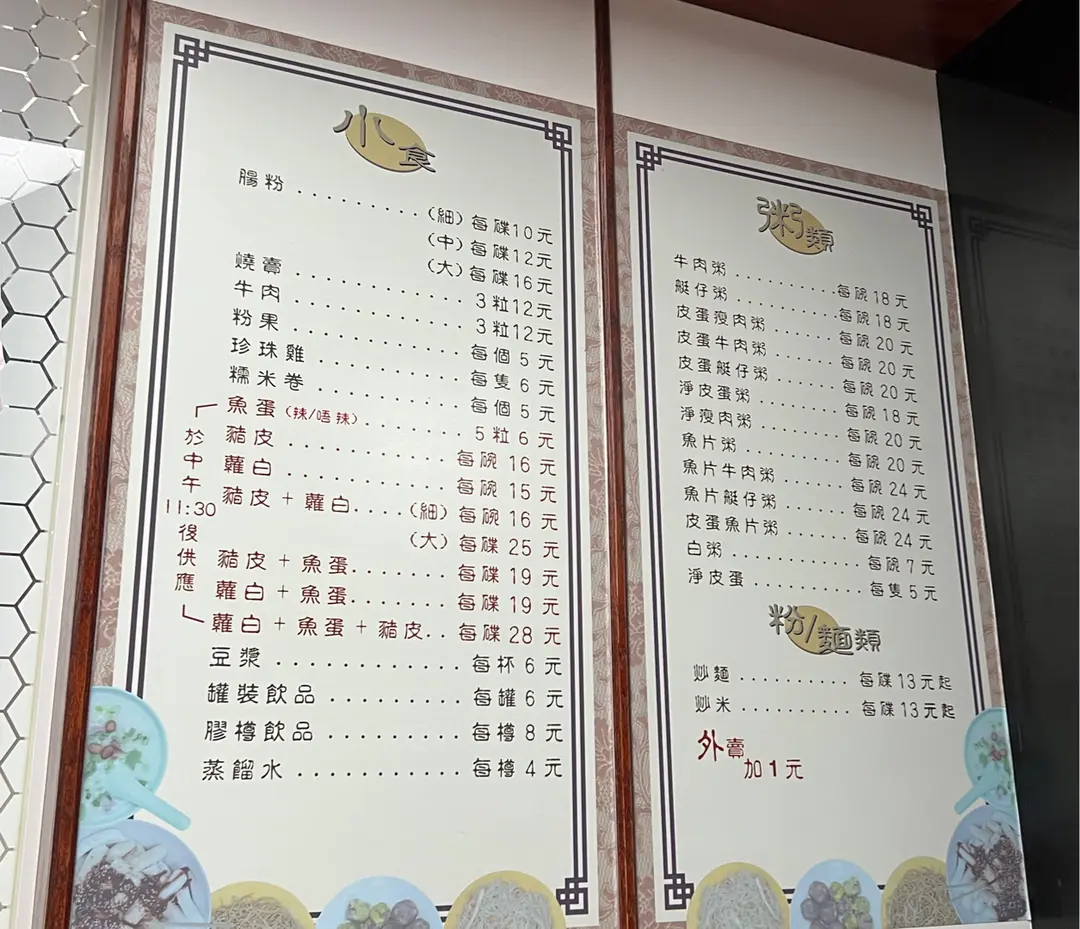 小食
腸粉.........(細)每碟10元
(中)每碟12元
(大)每碟16元
燒賣............3粒12元
牛肉............3粒12元
粉果............每個5元
珍珠雞..........每隻6元
糯米卷..........每個5元
魚蛋(辣/唔辣)........5粒6元
豬皮............每碗16元
蘿白............每碗15元
豬皮+蘿白....(細)每碗16元
(大)每碟25元
豬皮+魚蛋.......每碟19元
蘿白+魚蛋.......每碟19元
蘿白+魚蛋+豬皮..每碟28元
於中午11:30後供應
豆漿............每杯6元
罐裝飲品.........每罐6元
膠樽飲品.........每樽8元
蒸餾水...........每樽4元
粥類
牛肉粥..........每碗18元
艇仔粥..........每碗18元
皮蛋瘦肉粥.......每碗20元
皮蛋牛肉粥.......每碗20元
皮蛋艇仔粥.......每碗20元
淨皮蛋粥.........每碗18元
淨瘦肉粥.........每碗20元
魚片粥..........每碗20元
魚片牛肉粥.......每碗24元
魚片艇仔粥.......每碗24元
皮蛋魚片粥.......每碗24元
白粥............每碗7元
淨皮蛋...........每隻5元
粉/麵類
炒麵..........每碟13元起
炒米..........每碟13元起
外賣加1元